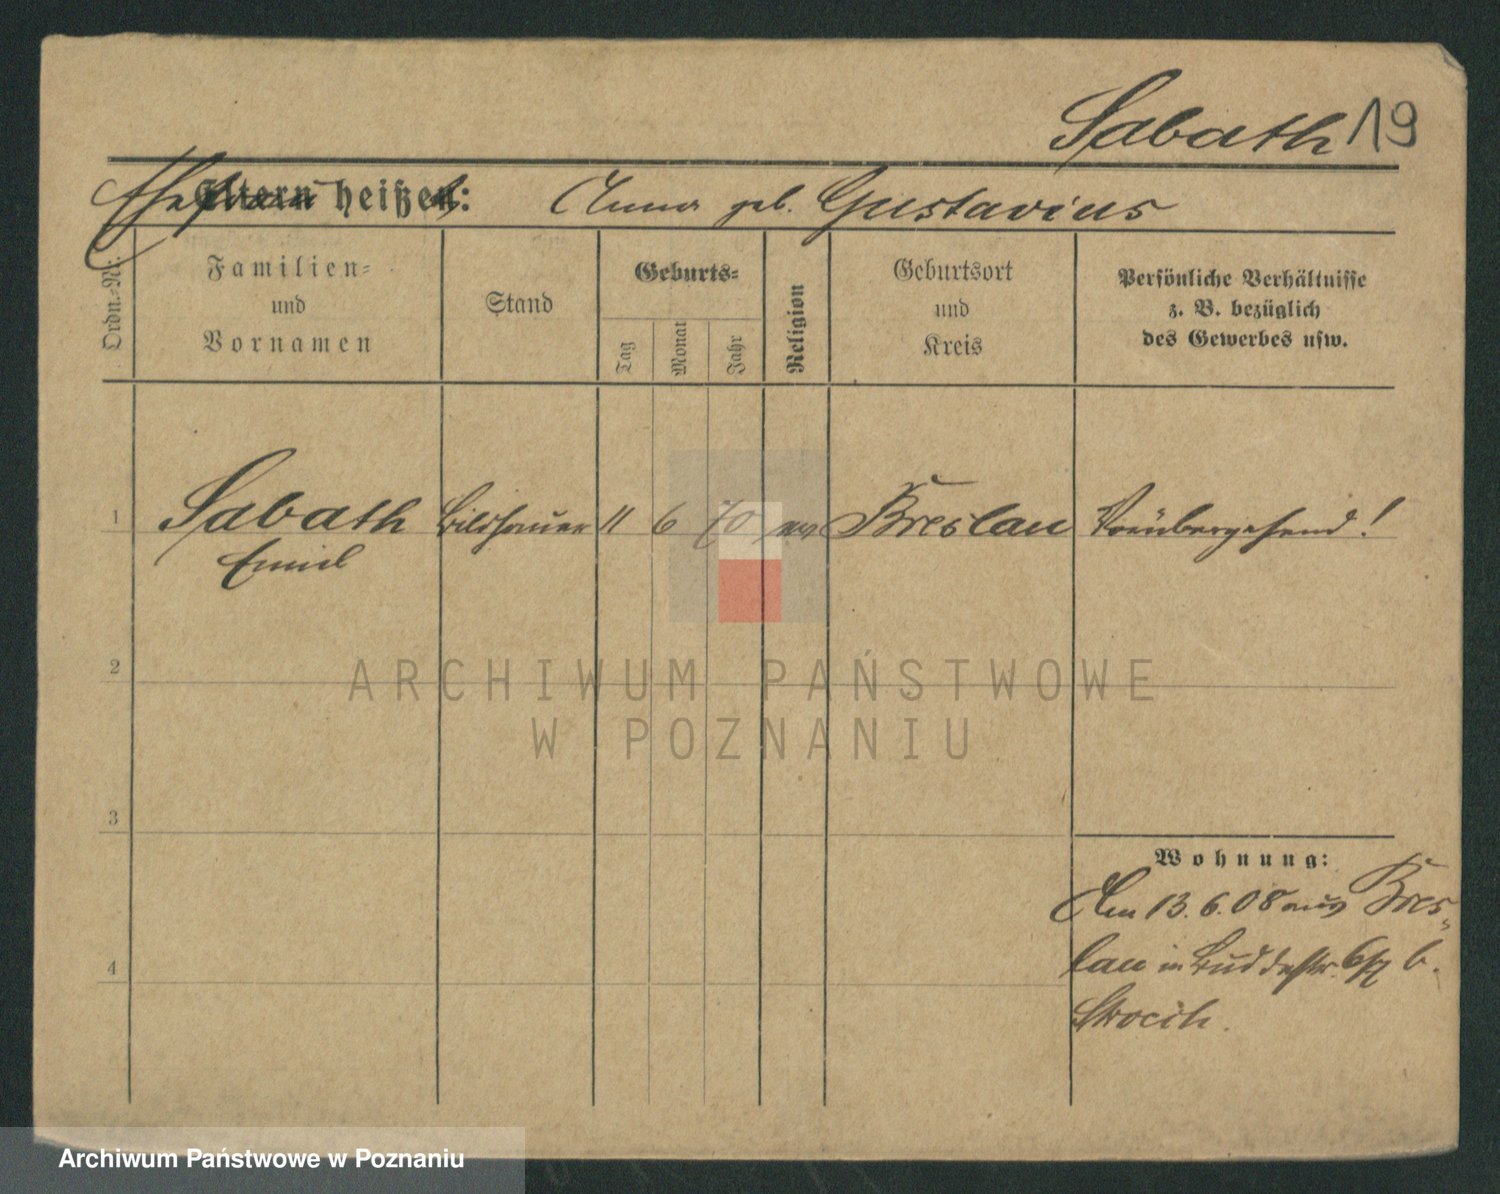 Sabath 19
Ehefrau heißt: Anna geb. Gustavius
Ordn.-Nr.
Familien-
und
Vornamen
Stand
Geburts-
Tag
Monat
Jahr
Religion
Geburtsort
und
Kreis
Persönliche Verhältnisse
z. B. bezüglich
des Gewerbes usw.
1 Sabath Bildhauer 11 6 70 ev Breslau Vorübergehend!
Emil
2
3
4
Wohnung:
Am 13. 6. 08 aus Bres-
lau in Buddestr. b.
ARCHIWUM PAŃSTWOWE
W POZNANIU
Archiwum Państwowe w Poznaniu